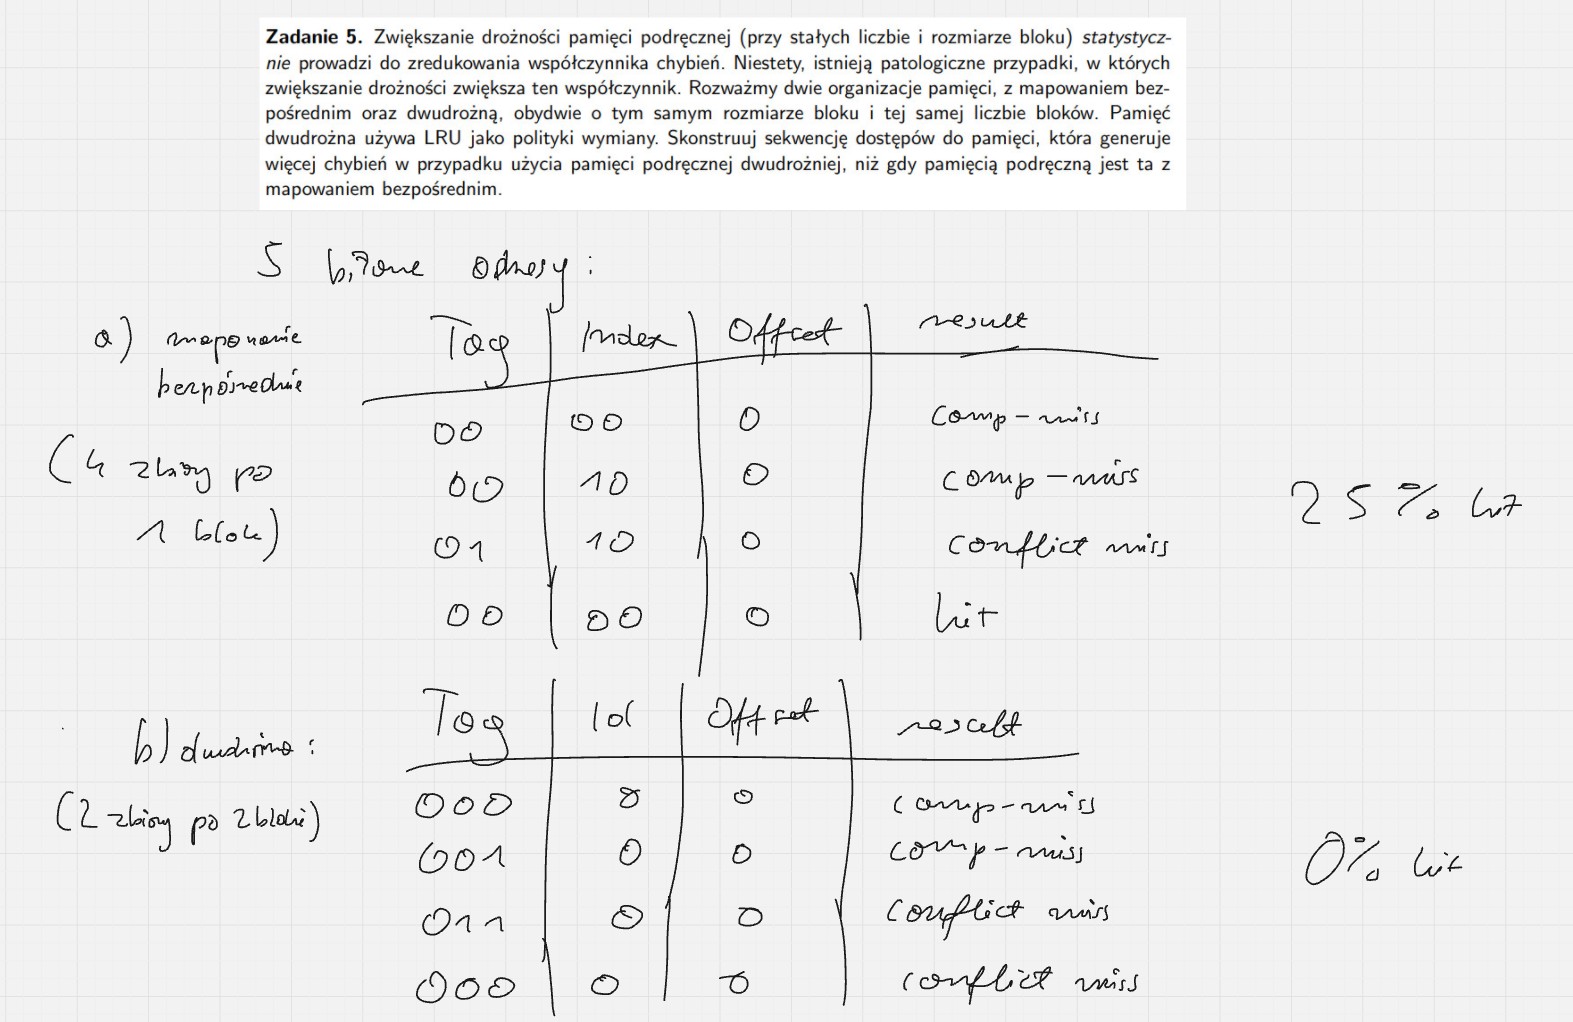 Zadanie 5. Zwiększanie drożności pamięci podręcznej (przy stałych liczbie i rozmiarze bloku) statystycz-
nie prowadzi do zredukowania współczynnika chybień. Niestety, istnieją patologiczne przypadki, w których
zwiększanie drożności zwiększa ten współczynnik. Rozważmy dwie organizacje pamięci, z mapowaniem bez-
pośrednim oraz dwudrożną, obydwie o tym samym rozmiarze bloku i tej samej liczbie bloków. Pamięć
dwudrożna używa LRU jako polityki wymiany. Skonstruuj sekwencję dostępów do pamięci, która generuje
więcej chybień w przypadku użycia pamięci podręcznej dwudrożniej, niż gdy pamięcią podręczną jest ta z
mapowaniem bezpośrednim.
5 bitowe adresy:
a) mapowanie
bezpośrednie
(4 zbiory po
1 bloku)
Tag Index Offset result
00 00 0 comp-miss
00 10 0 comp-miss
01 10 0 conflict miss
00 00 0 hit
25% hit
b) dwudrożna:
(2 zbiory po 2 bloki)
Tag Id Offset result
000 0 0 comp-miss
001 0 0 comp-miss
011 0 0 conflict miss
000 0 0 conflict miss
0% hit